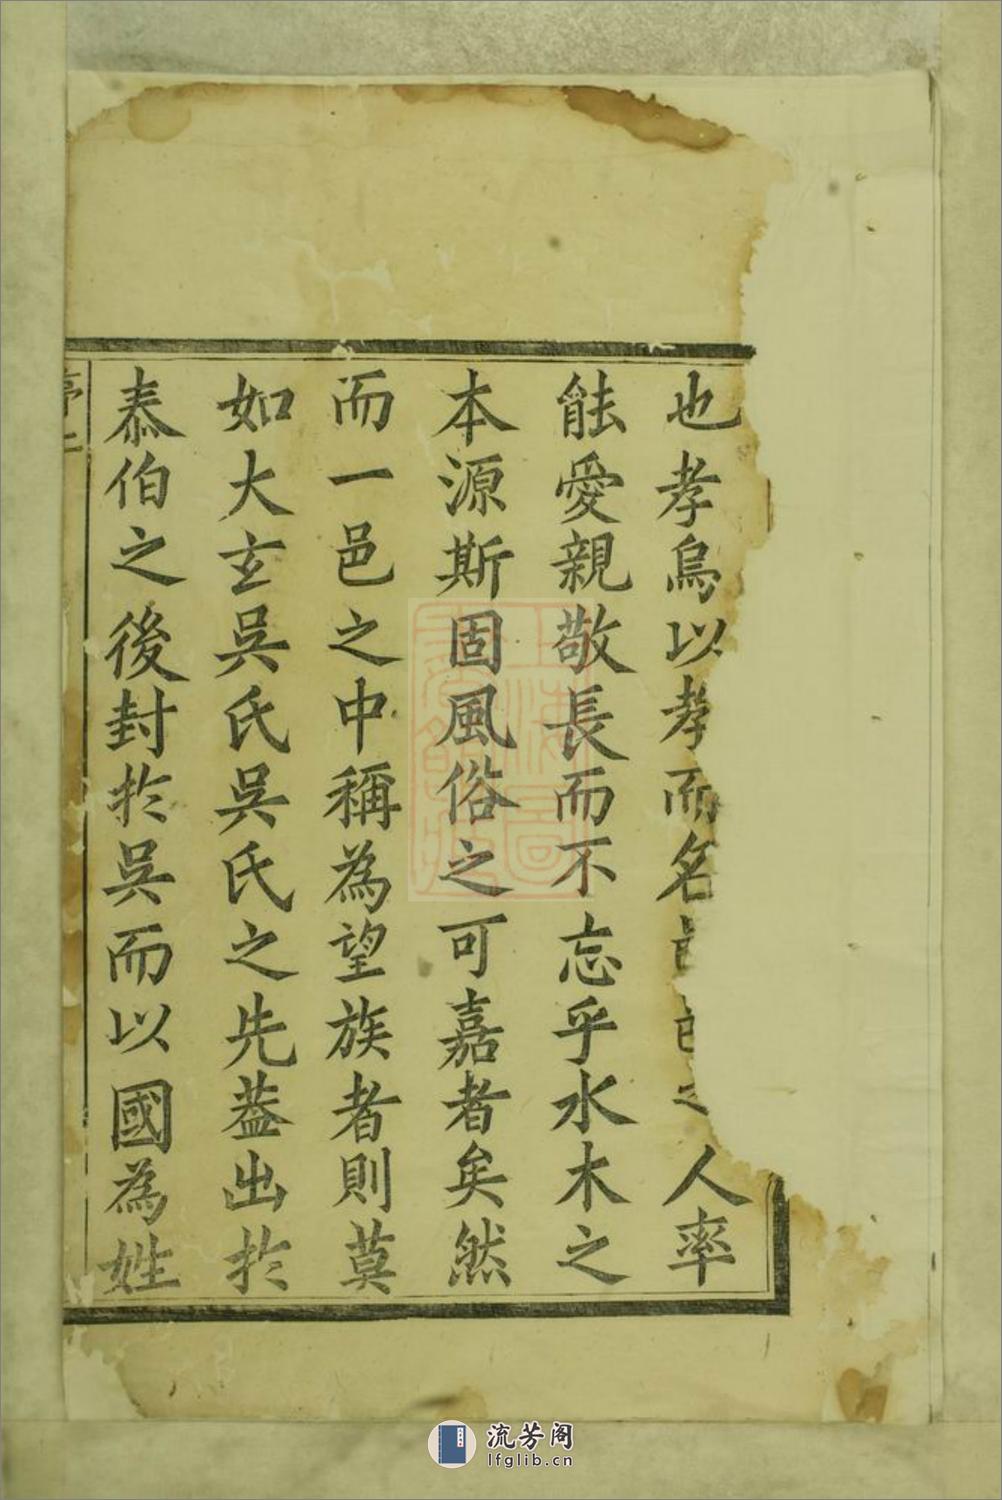 也孝烏以孝而名邑邑之人率
能愛親敬長而不忘乎水木之
本源斯固風俗之可嘉者矣然
而一邑之中稱為望族者則莫
如大玄吳氏吳氏之先葢出於
泰伯之後封於吳而以國為姓
序二
上海圖書館藏
流芳阁
lfglib.cn